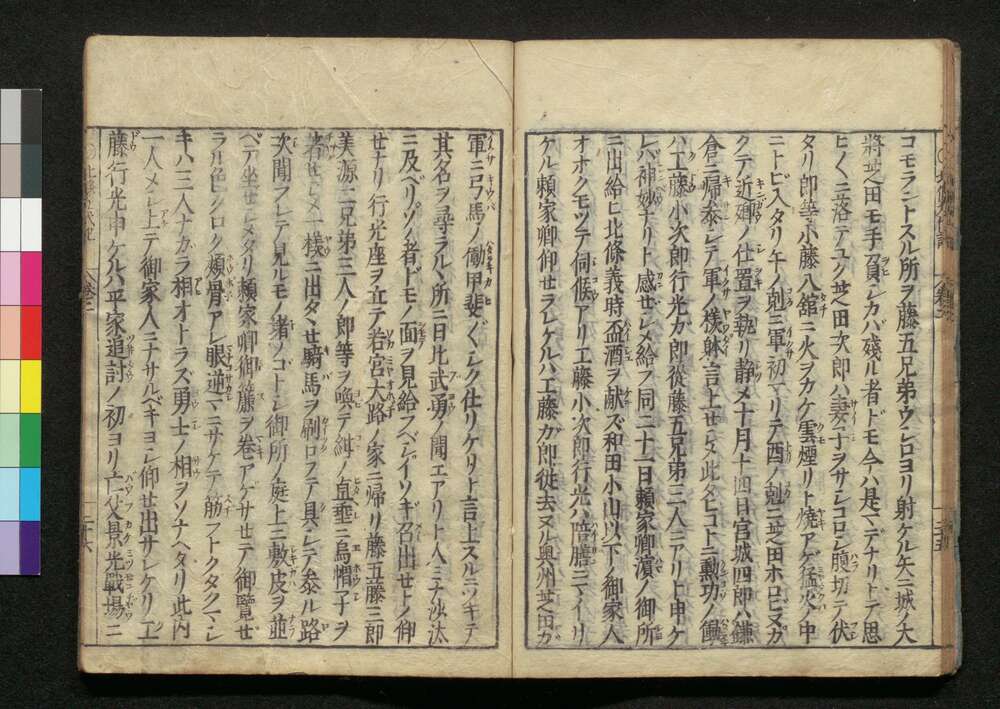 コモラントスル所ヲ藤五兄弟ウシロヨリ射ケル矢ニ城ノ大
将芝田モ手負シカバ残ル者ドモ今ハ是マデナリトテ思
ヒ〱ニ落テユク芝田次郎ハ妻子ヲサシコロシ腹切テ伏
タリ郎等小藤八舘ニ火ヲカケ雲煙リト焼アゲ猛火ノ中
ニトビ入タリ午ノ剋ニ軍初マリテ酉ノ剋ニ芝田ホロビヌカ
クテ近廻ノ仕置ヲ執リ静メ十月十四日宮城四郎ハ鎌
倉ニ帰参シテ軍ノ様躰言上セシム此タビコトニ勲功ノ働
ハ工藤小次郎行光ガ郎従藤五兄弟三人ニアリト申ケ
レバ神妙ナリト感ゼシメ給フ同二十一日頼家卿濱ノ御所
ニ出給ヒ北條義時盃酒ヲ献ズ和田小山以下ノ御家人
オホクモツテ伺候アリ工藤小次郎行光ハ陪膳ニマイリ
ケル頼家卿仰セラレケルハ工藤ガ郎従去ヌル奥州芝田ガ
軍ニ弓馬ノ働甲斐〲シク仕リケリト言上スルニツキテ
其名ヲ尋ラルヽ所ニ日比武勇ノ聞エアリト人ミナ沙汰
ニ及ベリソノ者ドモノ面ヲ見給フベシイソギ召出セトノ仰
セナリ行光座ヲ立テ若宮大路ノ家ニ帰リ藤五藤三郎
美源二兄弟三人ノ郎等ヲ喚テ紺ノ直垂ニ烏帽子ヲ
着セシメ一様ニ出タヽセ騎馬ヲ刷ロフテ具シテ参ル路
次聞フレテ見ルモノ堵ノゴトシ御所ノ庭上ニ敷皮ヲ並
ベテ坐セシメタリ頼家卿御簾ヲ巻アゲサセテ御覧ぜ
ラル色シロク頬骨アレ眼逆マニサケテ筋フトクタクマシ
キハ三人ナガラ相オトラズ勇士ノ相ヲソナヘタリ此内
一人メシ上テ御家人ニナサルベキヨシ仰セ出サレケリ工
藤行光申ケルハ平家追討ノ初ヨリ亡父景光戰場ニ
二十五
二十六